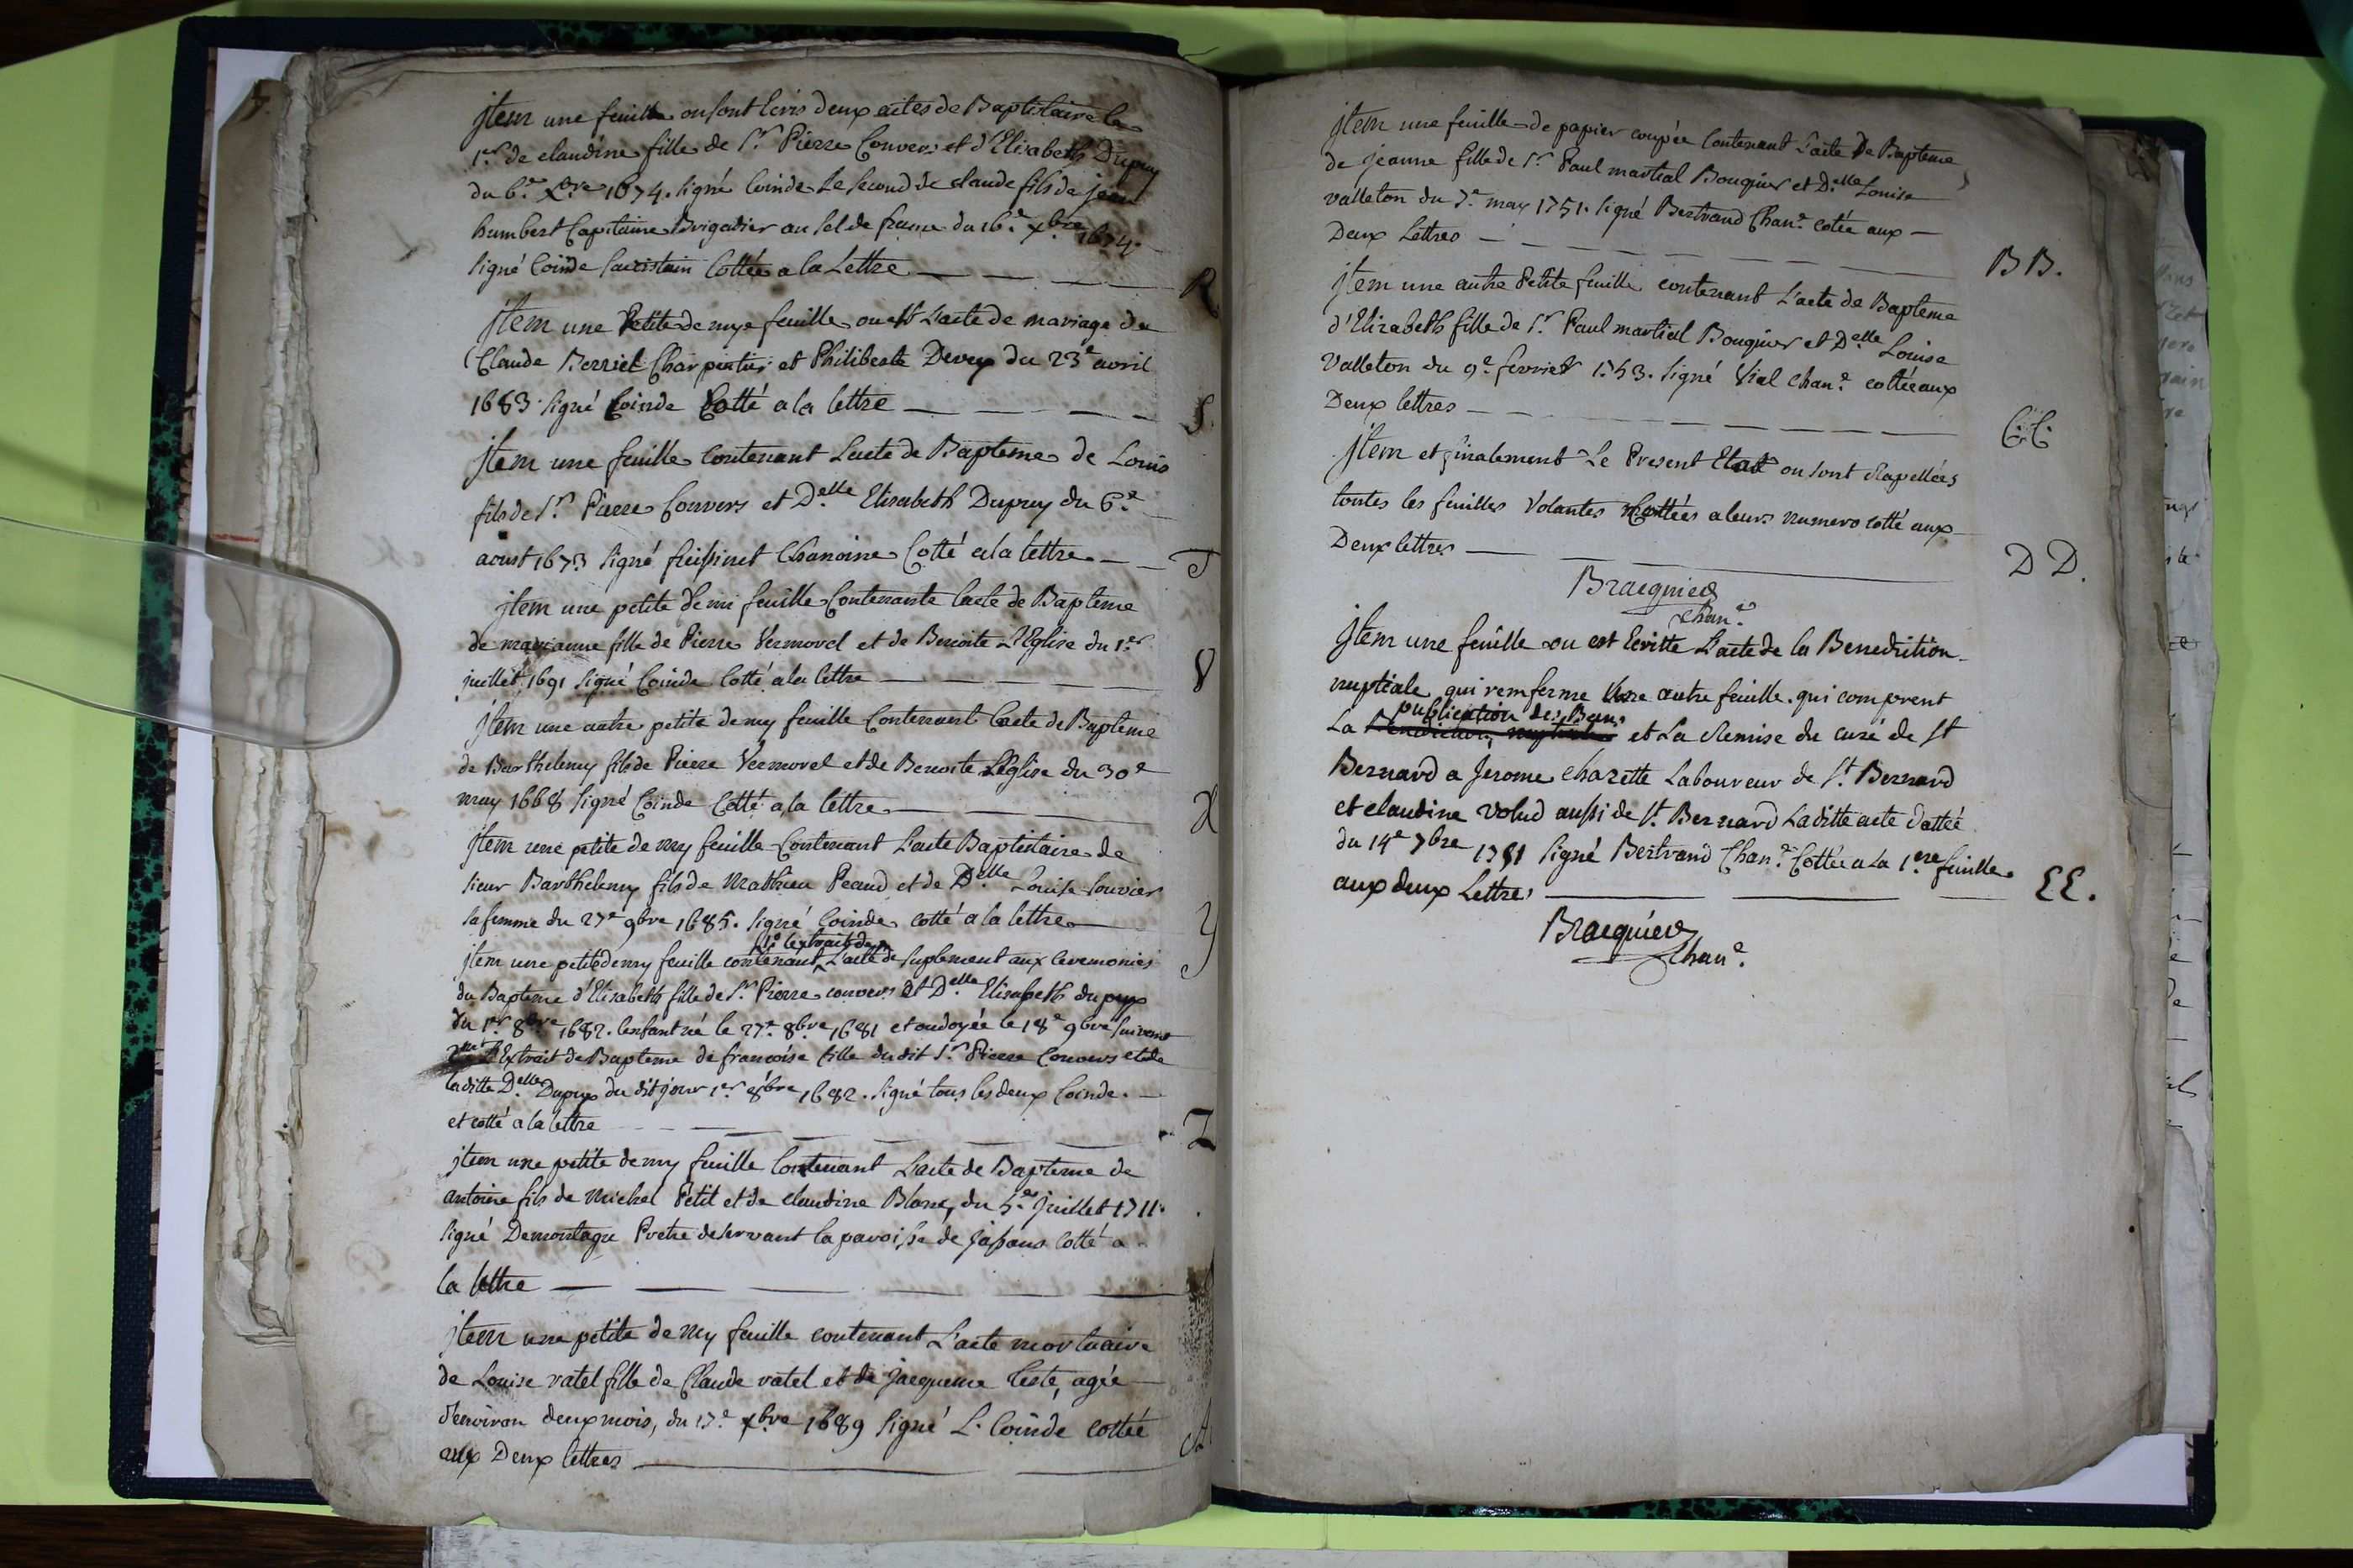 jtem une feuille ou sont Ecris deux actes de Baptistaire le
1.er de claudine fille de S.r Pierre Convers et d'Elisabeth Dupuy
du 6.e Xbre 1674. signé Coinde Le second de claude fils de jean
humbert Capitaine Brigadier au sel de france du 16.e xbre 1674.
signé Coinde sacristain Cottée a la Lettre R
jtem une Petite demye feuille ou est L'acte de mariage de
Claude Berriet Charpentier et Philiberte Devey du 23e avril
1683. signé Coinde Cotté a la lettre S.
jtem une feuille Contenant L'acte de Bapteme de Louis
fils de S.r Pierre Convers et D.elle Elisabeth Dupuy du 6.e
aoust 1673 signé Chanoine Cotté a la lettre T
jtem une petite demi feuille Contenante l'acte de Bapteme
de marianne fille de Pierre Vermorel et de Benoite L'Eglise du 1.er
juillet 1691 signé Coinde Cotté a la lettre V
jtem une autre petite demy feuille Contenant L'acte de Bapteme
de Barthelemy fils de Pierre Vermorel et de Benoite L'Eglise du 30e
may 1668 signé Coinde Cotté a la lettre X
jtem une petite demy feuille Contenant L'acte Baptistaire de
sieur Barthelemy fils de Mathieu Peaud et de D.elle Louise Louvier
sa femme du 27e 9bre 1685. signé Coinde cotté a la lettre y
1.o L'extrait de
jtem une petite demy feuille contenant L'acte de suplement aux ceremonies
du Bapteme d'Elisabeth fille de S.r Pierre convers et D.elle Elisabeth dupuy
du 1.er 8bre 1682. l'enfant né le 27.e 8bre 1681 et ondoyée le 18e 9bre suivant
Extrait de Bapteme de francoise fille du dit S.r Pierre Convers et de
laditte D.elle Dupuy du dit jour 1.er 8bre 1682. signé tous les deux Coinde.
et cotté a la lettre Z
jtem une petite demy feuille Contenant L'acte de Bapteme de
antoine fils de Michel Petit et de claudine Blanc, du 5.e juillet 1711.
signé Demontagu Pretre deservant la paroisse de jassans cotté a
la lettre
jtem une petite demy feuille contenant L'acte mortuaire
de Louise vatel fille de Claude vatel et de jacqueme Teste, agée
d'environ deux mois, du 17.e xbre 1689 signé L. Coinde cottée
aux Deux lettres A
jtem une feuille de papier coupée Contenant L'acte De Bapteme
de jeanne fille de S.r Paul martial Bouquier et D.elle Louise
valleton du 7.e may 1751. signé Bertrand Chan.e cotée aux
Deux Lettres BB.
jtem une autre Petite feuille contenant L'acte de Bapteme
d'Elizabeth fille de S.r Paul martial Bouquier et D.elle Louise
Valleton du 9.e fevrier 1753. signé Vial Chan.e cottée aux
Deux lettres CC.
jtem et finalement Le Present Etat ou sont Rapellées
toutes les feuilles Volantes Cottées a leurs numero cotté aux
Deux lettres DD.
Bracquier
Chan.e
jtem une feuille ou est Ecritte L'acte de la Benediction
nuptiale qui remferme Une autre feuille qui comprent
publication des Bans
La et La Remise du curé de St
Bernard a Jerome Charette Laboureur de St. Bernard
et claudine Volud aussi de St. Bernard Laditte acte dattée
du 14e 7bre 1751 signé Bertrand Chan.e Cottée a La 1.ere feuille
aux deux Lettres EE.
Bracquier
Chan.e